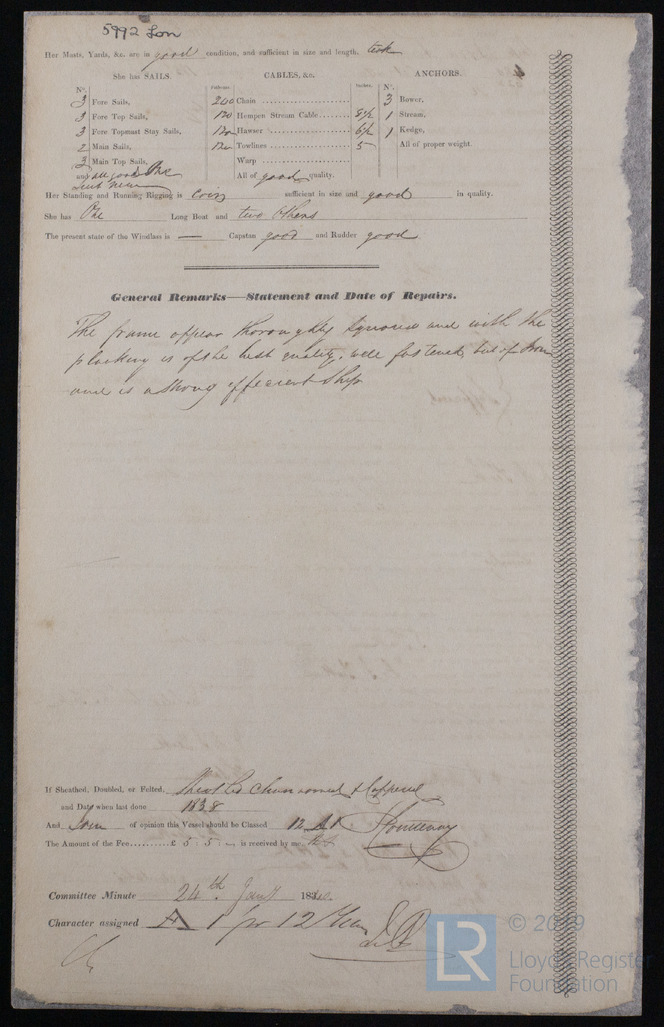 5992 Lon
Her Masts, Yards, &c. are in good condition, and sufficient in size and length.
She has SAILS.
N.
3 Fore Sails,
3 Fore Top Sails,
3 Fore Topmast Stay Sails,
2 Main Sails,
3 Main Top Sails,
and all good One
Suit New
CABLES, &c.
Fathoms. Inches.
200 Chain
120 Hempen Stream Cable 8½
120 Hawser 6½
120 Towlines 5
Warp
All of good quality.
ANCHORS.
N.
3 Bower,
1 Stream,
1 Kedge,
All of proper weight.
Her Standing and Running Rigging is sufficient in size and good in quality.
She has One Long Boat and two others
The present state of the Windlass is — Capstan good and Rudder good
General Remarks—Statement and Date of Repairs.
The frame appear thoroughly and with the
planking is of the best quality. well fastened but of Iron
and is a strong efficient Ship
If Sheathed, Doubled, or Felted, Sheathed Coppered
and Date when last done 1838
And I am of opinion this Vessel should be Classed 12 A1. Courtenay
The Amount of the Fee £ 5 5 – is received by me,
Committee Minute 24th Jany 1840.
Character assigned A 1 for 12 Years
LR © 2019
Lloyd's Register
Foundation